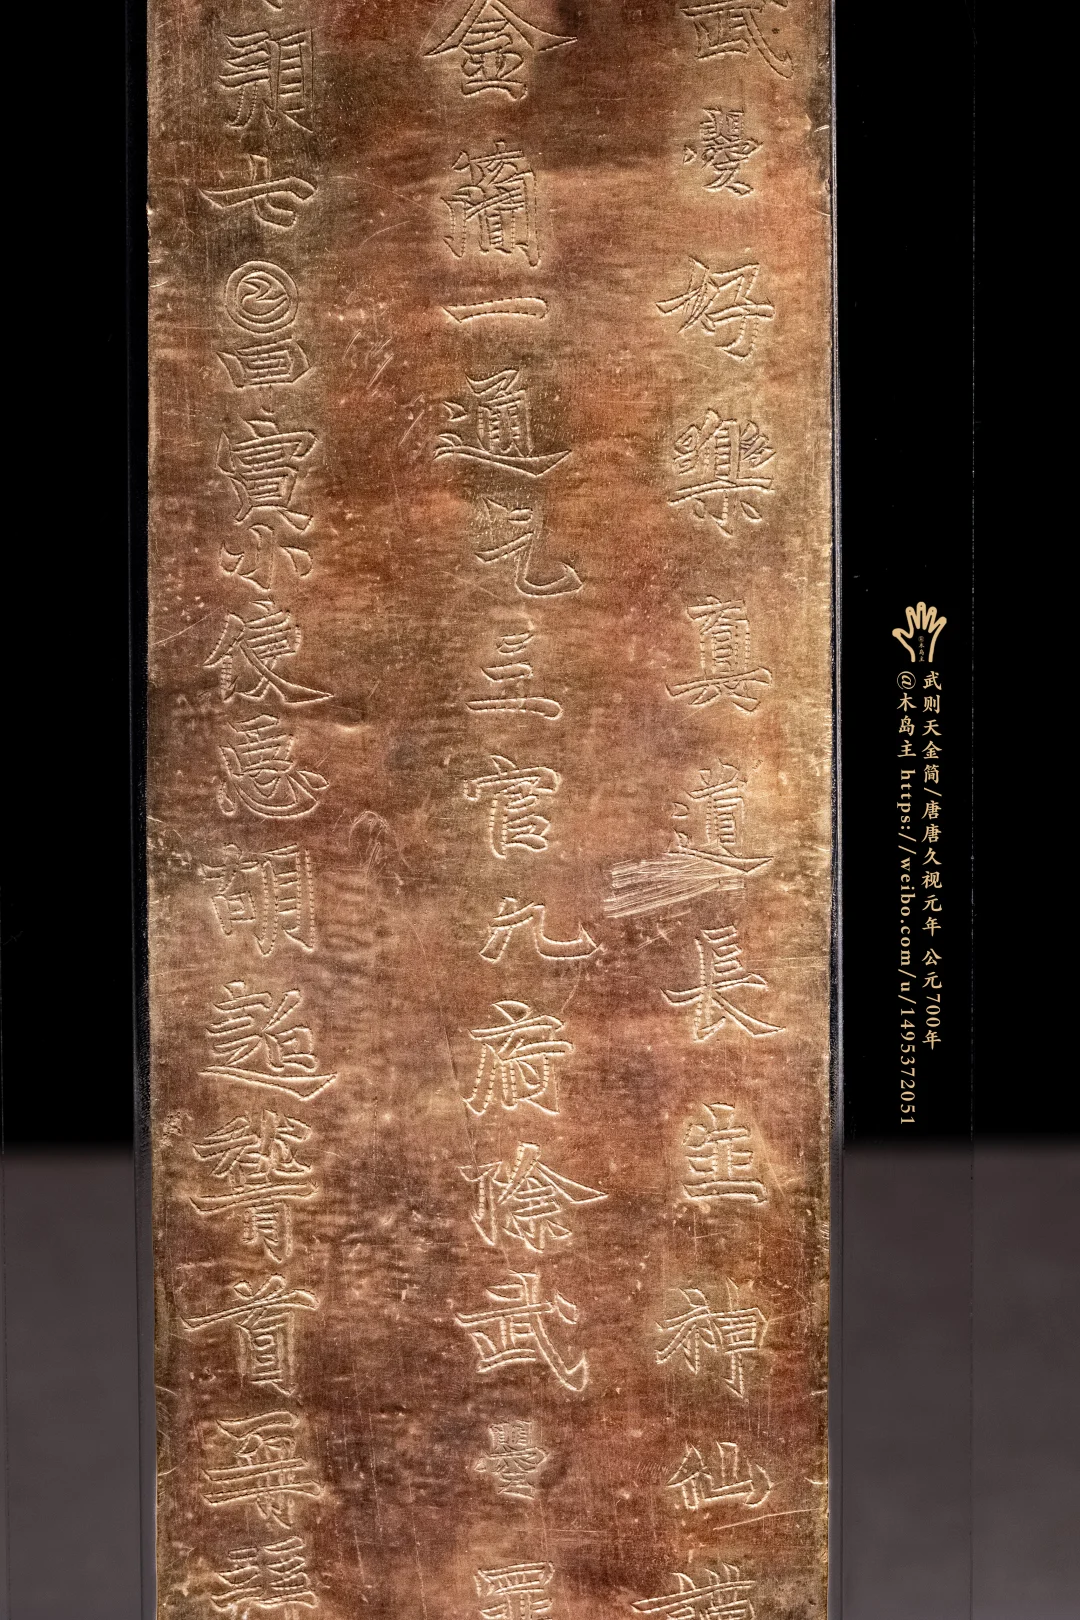 武曌好樂真道長𤯔神仙謹
金簡一通乞三官九府除武曌罪
朔七𡆠甲寅小使𢘑胡超稽首再拜
武则天金简/唐唐久视元年 公元700年
@木岛主 https://weibo.com/u/1495372051